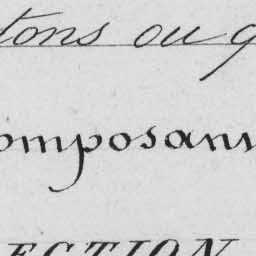 tons ou q
omposan
ECTION